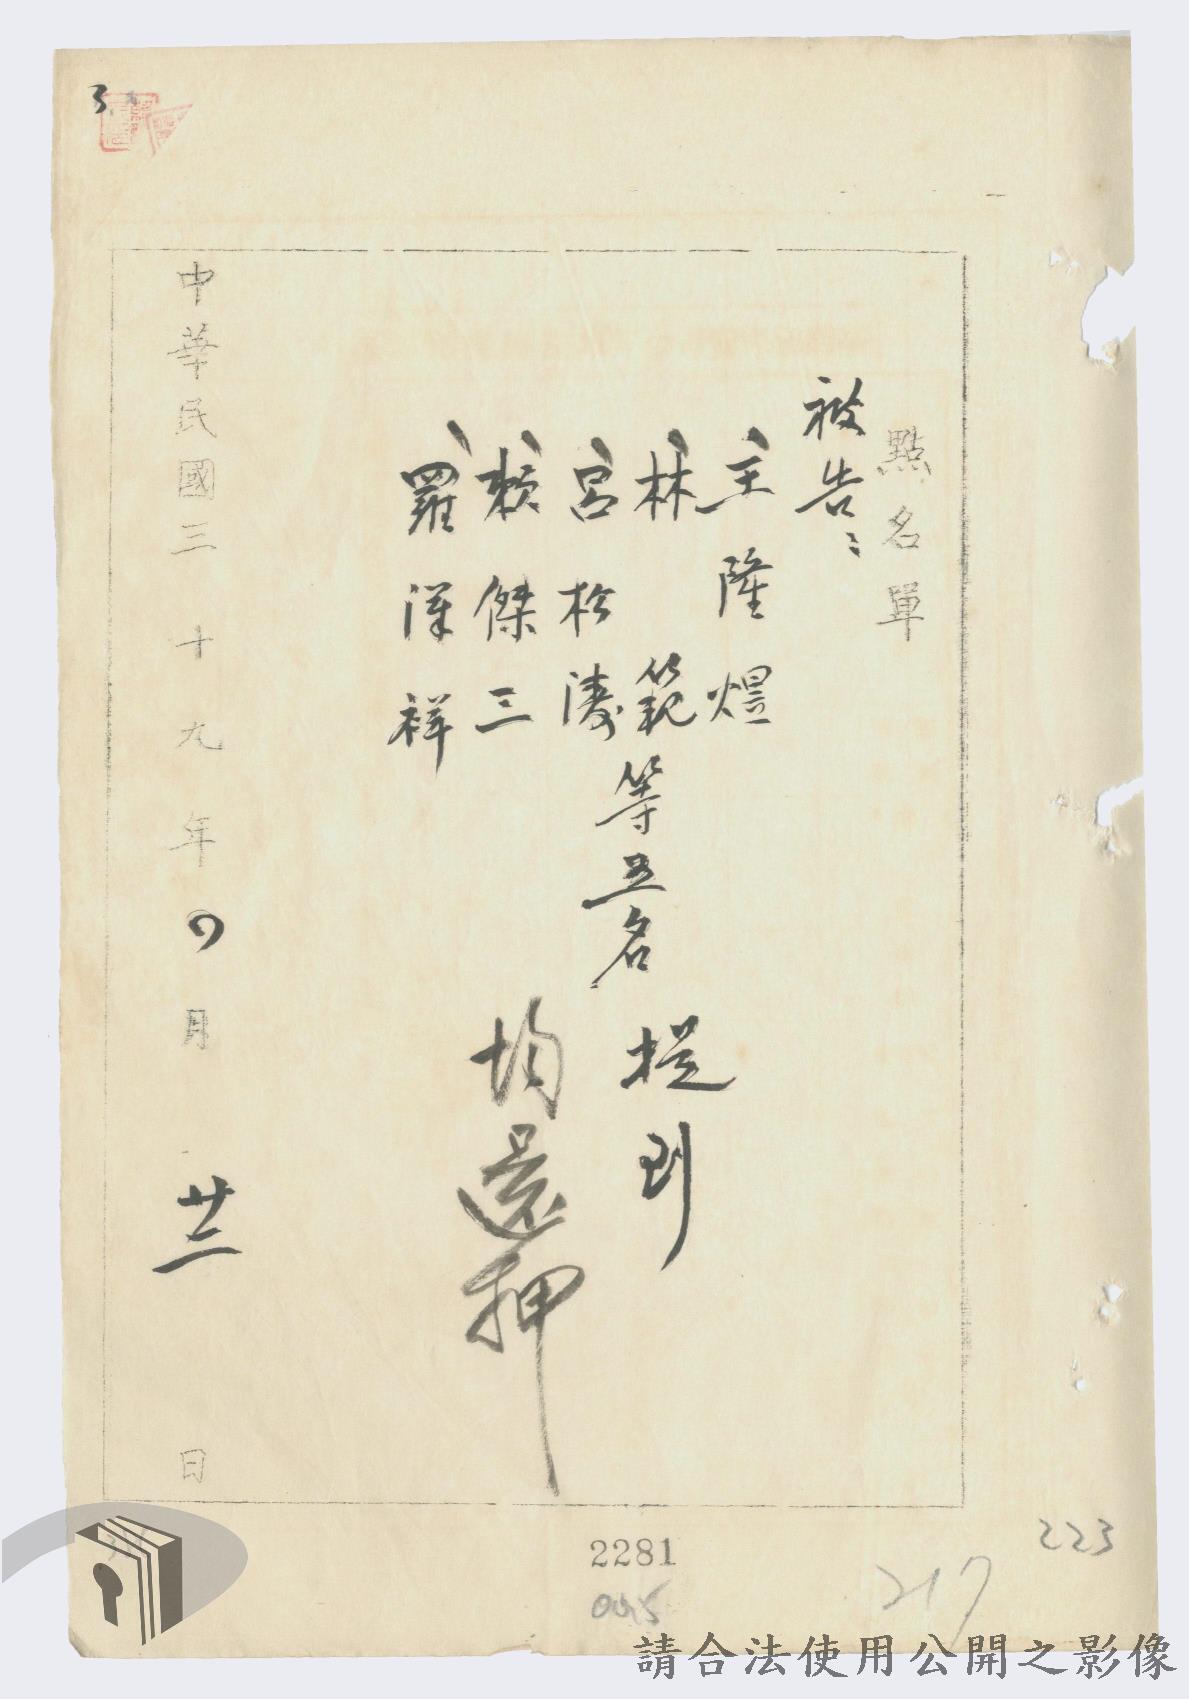 點名單
被告:
王隆煜
林範
呂松濤
賴傑三
羅澤祥
等五名
提到
均還押
中華民國三十九年四月廿三日
2281
223
217
請合法使用公開之影像